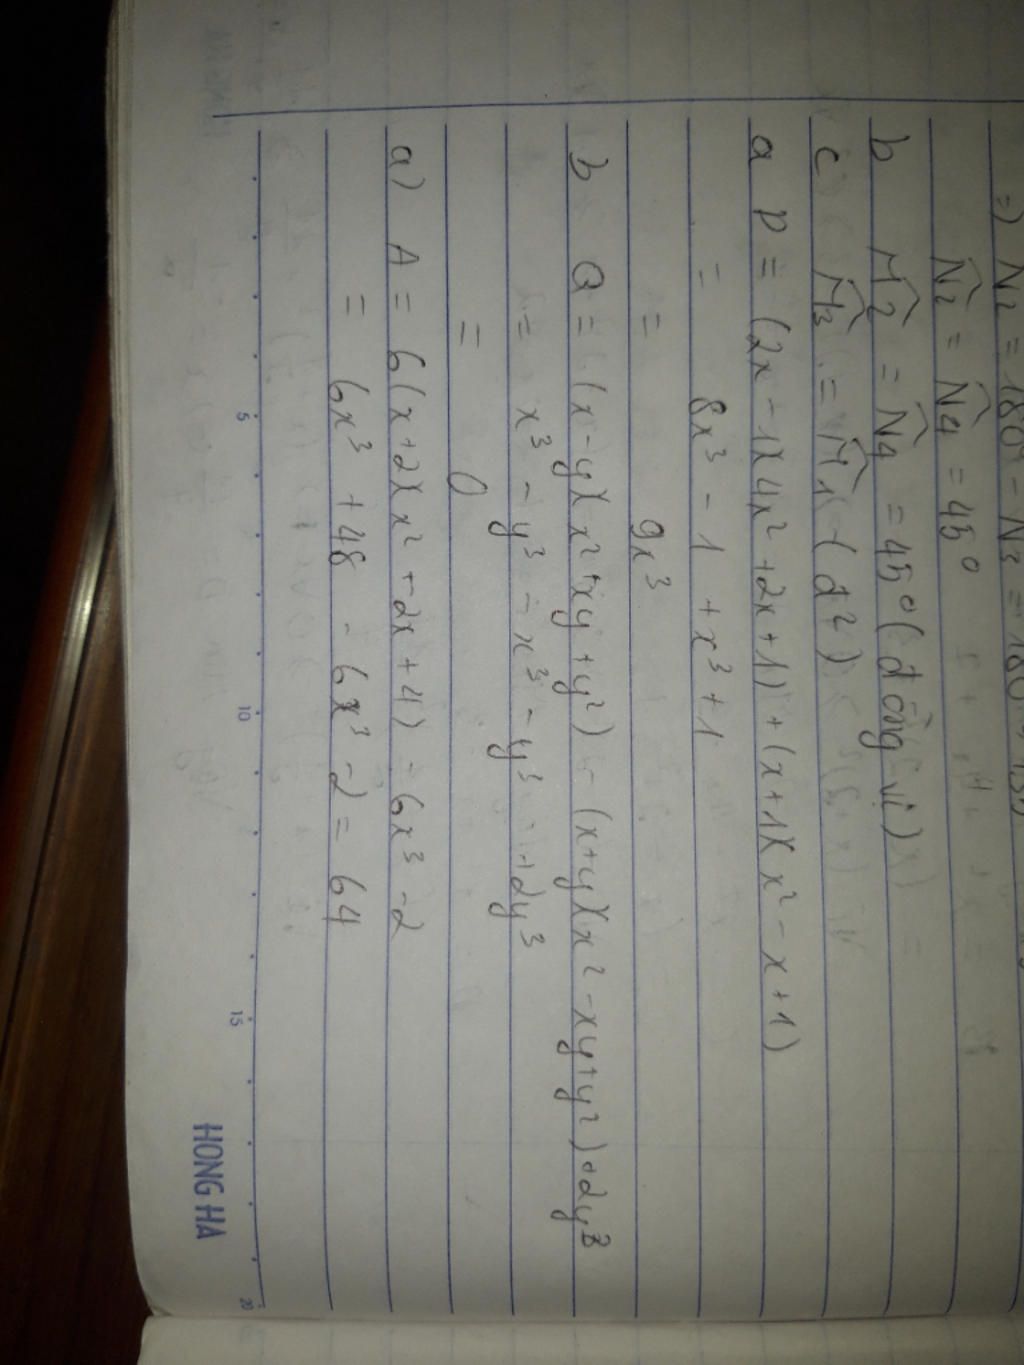 =) N2 = 180° - N3 =
N̂2 = N̂4 = 45°
b M̂2 = N̂4 = 45° (đồng vị)
c) M̂3 = M̂1 (đ²)
a P = (2x - 1)(4x² + 2x + 1) + (x + 1)(x² - x + 1)
= 8x³ - 1 + x³ + 1
= 9x³
b Q = (x - y)(x² + xy + y²) - (x + y)(x² - xy + y²) + 2y³
= x³ - y³ - x³ - y³ + 2y³
= 0
a) A = 6(x + 2)(x² - 2x + 4) - 6x³ - 2
= 6x³ + 48 - 6x³ - 2 = 64
5 10 15 20
HONG HA